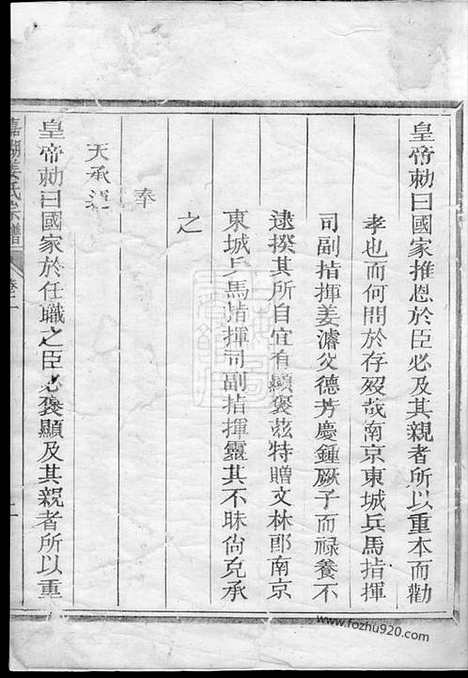 皇帝勅曰國家推恩於臣必及其親者所以重本而勸
孝也而何問於存殁哉南京東城兵馬指揮
司副指揮姜濬父德芳慶鍾厥子而祿養不
逮揆其所自宜有顯褒茲特贈文林郎南京
東城兵馬指揮司副指揮靈其不昧尚克承
之
奉
天承運
皇帝勅曰國家於任職之臣必褒顯及其親者所以重
姜氏宗譜 卷二
www.fozhu920.com